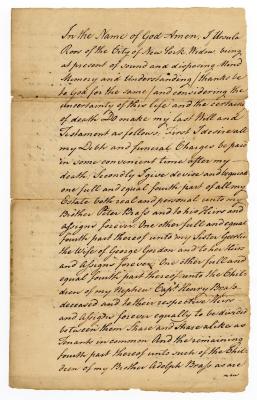 In the Name of God Amen, I Ursula
Ross of the City of New York Widow being
at present of sound and disposing Mind
Memory and Understanding (thanks be
to God for the same) and considering the
uncertainty of this life and the certainty
of death Do make my last Will and
Testament as follows. First I desire all
my Debts and funeral Charges be paid
in some convenient time after my
death. Secondly I give devise and bequeath
one full and equal fourth part of all my
Estate both real and personal unto my
Brother Peter Brass and to his Heirs and
assigns forever. One other full and equal
fourth part thereof unto my Sister
the Wife of George Gordon and to her Heirs
and Assigns forever. One other full and
equal fourth part thereof unto the Chil-
dren of my Nephew Capt. Henry Brass
deceased and to their respective Heirs
and Assigns forever equally to be divided
between them Share and Share alike as
Tenants in common And the remaining
fourth part thereof unto such of the Chil-
dren of my Brother Adolph Brass as are
now